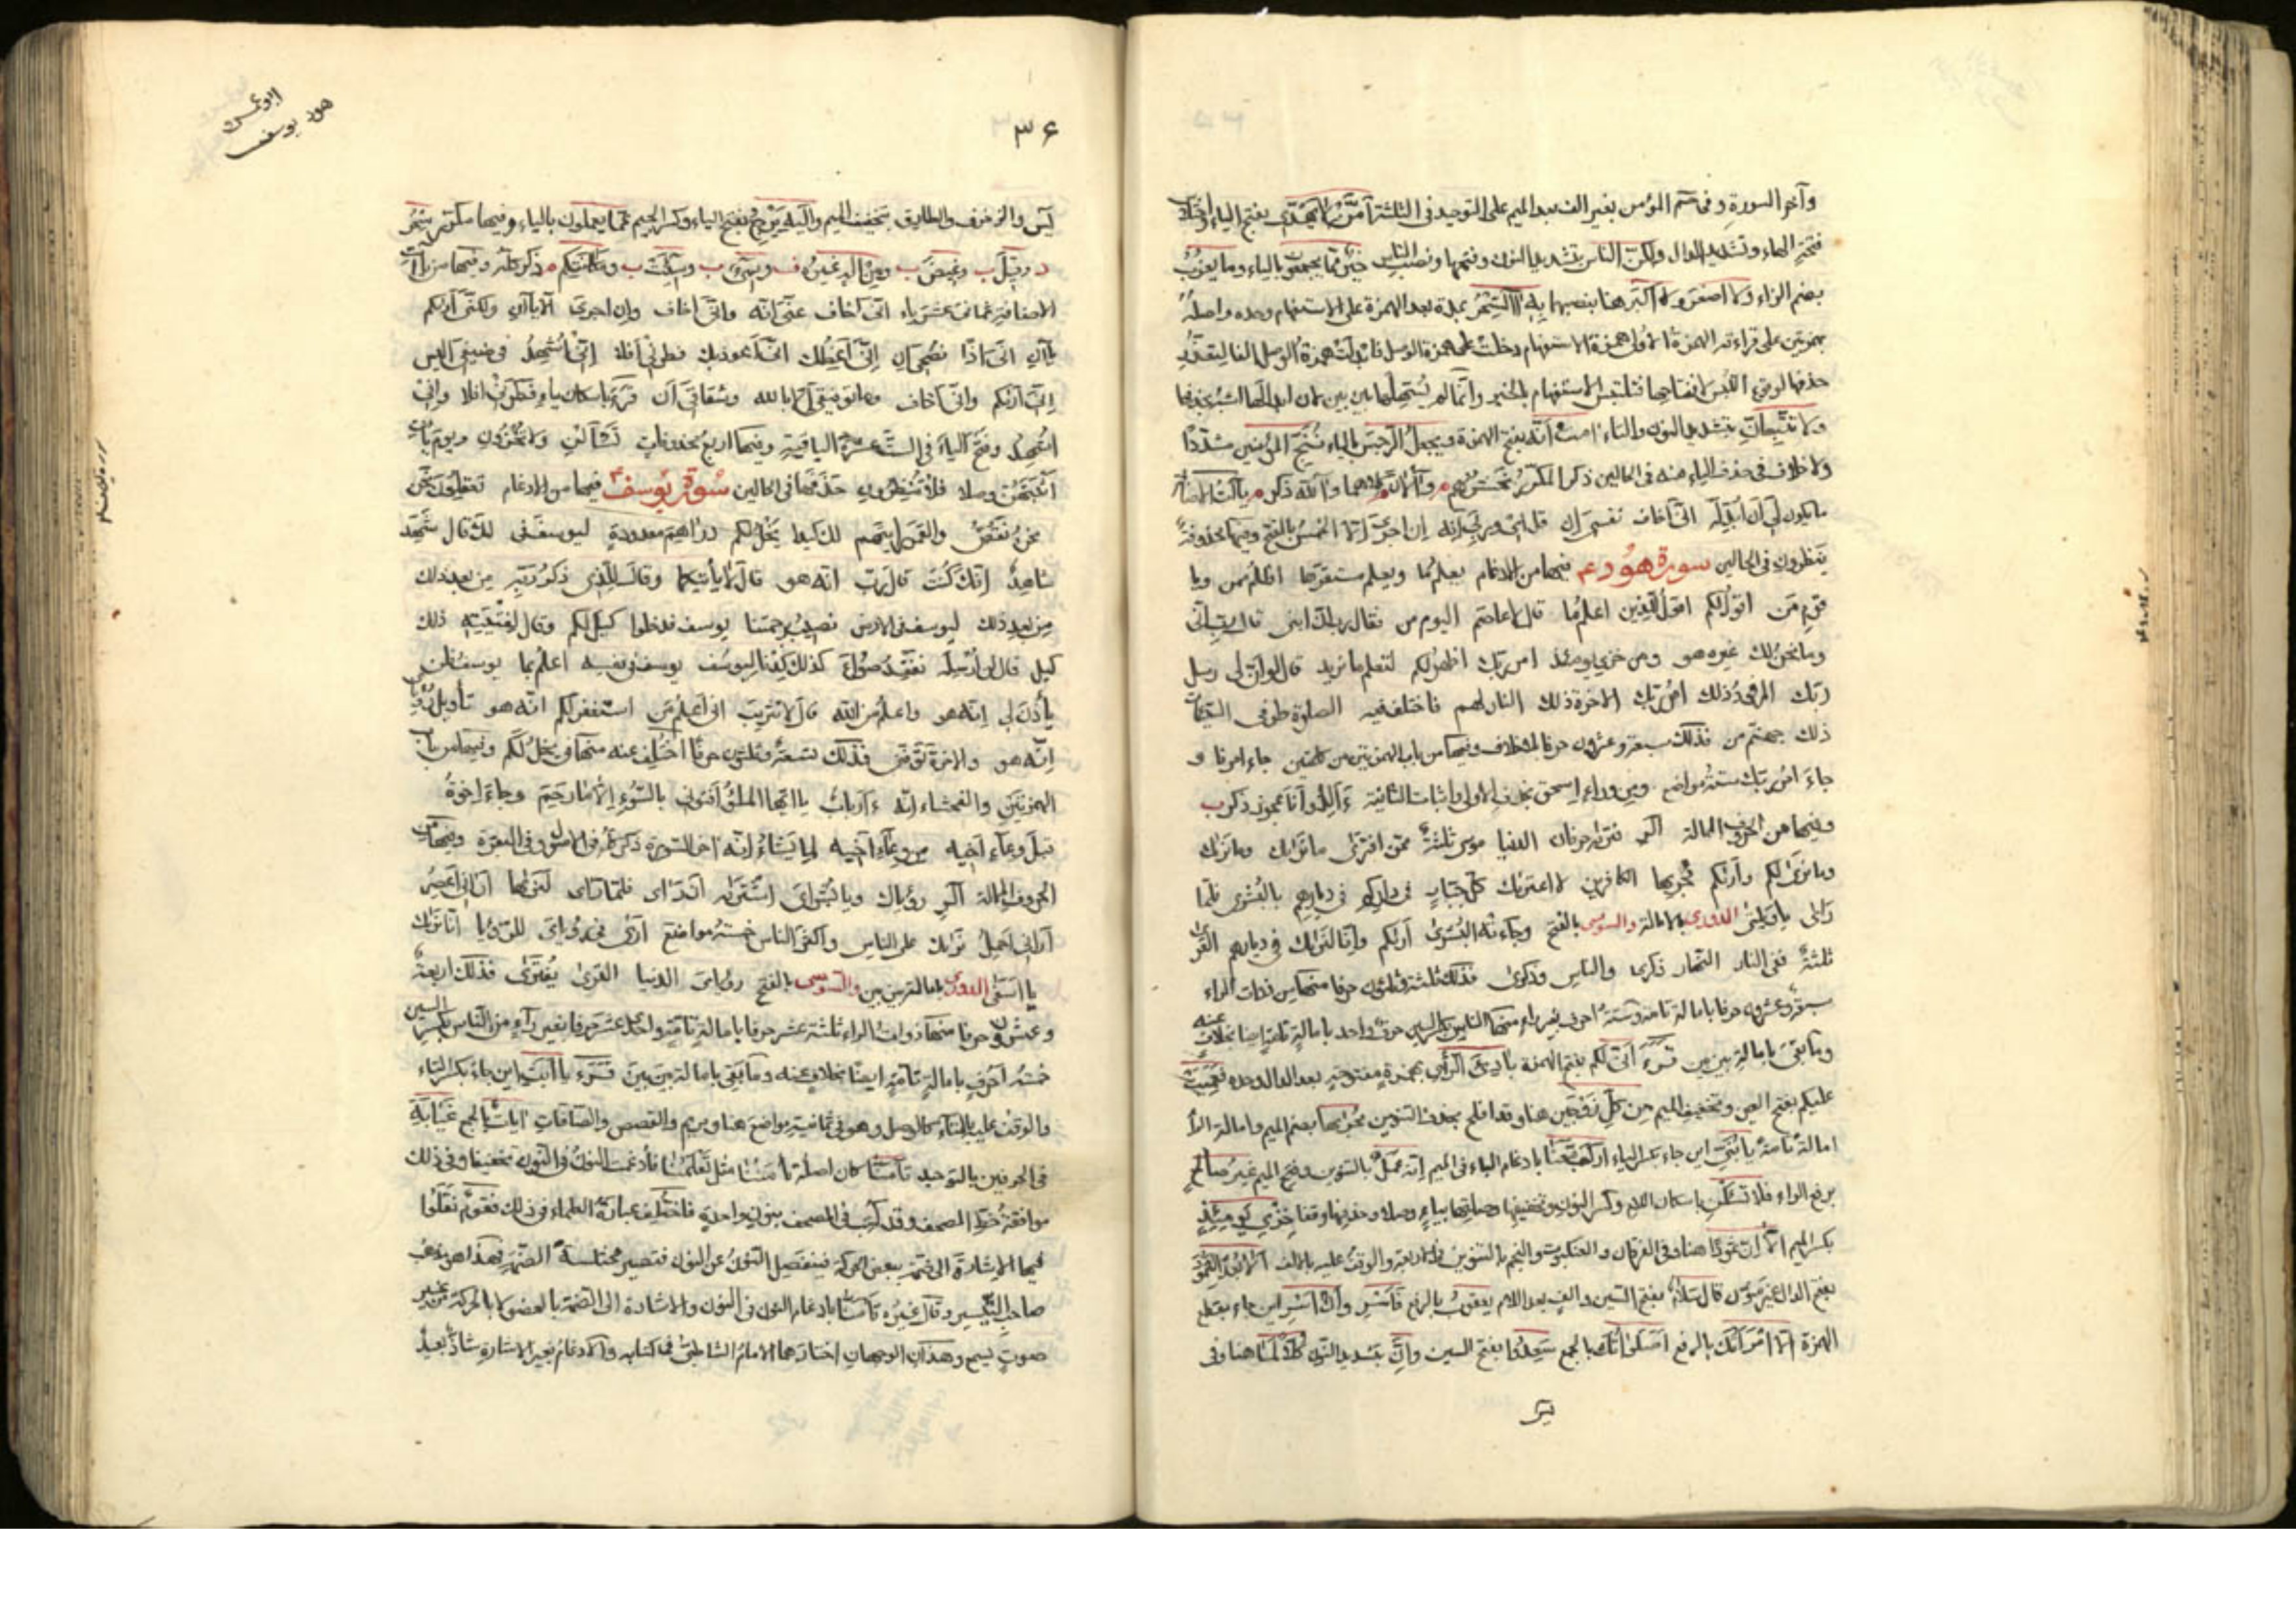 وآخر السورة وفي حم المؤمن بغير الف بعد الميم على التوحيد في الثلثة امن لا يهدي بفتح الياء
فتحة الهاء وتشديد الدال ولكن الناس بتشديد النون وفتحها ونصب الناس خير مما يجمعون بالياء وما يعزب
بضم الزاء ولا اصغر ولا اكبر هنا بنصبهما به السحر بمدة بعد الهمزة على الاستفهام وحده واصله
بهمزتين على قراءته الهمزة الاولى همزة الاستفهام دخلت على همزة الوصل فابدلت همزة الوصل الفا
حذفها لوقوع اللبس فتلتبس الاستفهام بالخبر وانما لم يستعملها بين بين لان ابدالها
ولا تتبعان بتشديد النون والتاء امنت انه بفتح الهمزة ويجعل الرجس بالياء ننج المؤمنين مشددا
ولا خلاف في حذف الياء منه في الحالين ذكر المكرر نحشرهم م والآن كلاهما وآلله ذكر م ياآت
ما يكون لي ان ابدله اني اخاف نفسي ان قل اي وربي انه ان اجري الا الخمس بالفتح وفيها محذوفة
ينظرون في الحالين سورة هود عم فيها من الادغام يعلم ما ويعلم مستقرها اظلم ممن ويا
قوم من اقول لكم اقول للذين اعلم بما قال لا عاصم اليوم من فقال رب ان ابني قال رب اني
وما نحن لك غيره هو ومن خزي يومئذ امر ربك اطهر لكم لتعلم ما نريد قال لو ان لي رسل
ربك المرفود ذلك امر ربك الآخرة ذلك النار لهم فاختلف فيه الصلوة طرفي السيئات
ذلك جهنم من فذلك سبعة وعشرون حرفا بلا خلاف وفيها من باب الهمزتين من كلمتين جاء امرنا و
جاء امر ربك ستة مواضع ومن وراء اسحق بحذف الاولى واثبات الثانية ءالد وانا عجوز ذكر ب
وفيها من الحروف الممالة الر افتراه حرفان الدنيا موسى ثلثة ممن افترى ما نراك وما نراك
وما نرى لكم واراكم مجريها الكافرين الا اعتراك كل جبار في داركم في ديارهم بالبشرى فلما
راى يا ويلتى الدوري بالامالة والسوسي بالفتح وجاءته البشرى اراكم وانا لنراك في ديارهم القرى
ثلثة ففي النار النهار ذكرى والناس وذكرى فذلك ثلثة وثلثون حرفا منها من ذوات الراء
سبعة وعشرون حرفا بامالة تامة وستة احرف بغير راء منها الناس بكسر السين حرف واحد بامالة تامة ايضا بخلاف عنه
وما بقي بامالة بين بين قرئ اني لكم بفتح الهمزة بادئ الرأي بهمزة مفتوحة بعد الدال وحده فعميت
عليكم بفتح العين وتخفيف الميم من كل زوجين هنا وقد افلح بحذف التنوين مجريها بضم الميم وامالة الراء
امالة تامة يا بني اين جاء بكسر الياء اركب معنا بادغام الباء في الميم انه عمل بالتنوين وفتح الميم غير صالح
برفع الراء فلا تسئلن باسكان اللام وكسر النون وتخفيفها وصلتها بياء وصلا وحذفها وقفا خزي يومئذ
بكسر الميم الا ان ثمودا هنا وفي الفرقان والعنكبوت والنجم بالتنوين في الاربعة والوقف عليه بالالف الا بعدا لثمود
بفتح الدال غير منون قال سلام بفتح السين والف بعد اللام يعقوب بالرفع فاسر وان اسر اين جاء بقطع
الهمزة الا امرأتك بالرفع اصلواتك بالجمع سعدوا بفتح السين وان بتشديد النون كلا لما هنا وفي
يس
ابو عمرو
هود يوسف
٣۶
يس والزخرف والطارق بتخفيف الميم واليه يرجع بفتح الياء وكسر الجيم عما يعملون بالياء وفيها مكرر
د وقيل ب وغيض ب ومن اله غيره ف وسيء ب وسيئت ب ومكانتكم م ذكر كله وفيها من ياآت
الاضافة ثماني عشر ياء اني اخاف عني انه واني اخاف وان اجري الا ياآن ولكني اراكم
ياآن اني اذا نصحي ان اني اعظك اني اعوذ بك فطرني افلا اني اشهد في ضيفي اليس
اني اراكم واني اخاف وما توفيقي الا بالله وشقاقي ان قرئ باسكان ياء فطرني افلا واني
اشهد وفتح الياء في الست عشرة الباقية وفيها اربع محذوفات تسألن ولا تخزون ويوم يأت
اثبتهن وصلا فلا تنظرون حذفها في الحالين سورة يوسف فيها من الادغام تعقلون نحن
نحن نقص والقمر رايتهم لك كيدا يخل لكم دراهم معدودة ليوسف في لك قال شهد
شاهد انك كنت قال رب انه هو قال لا يأتيكما وقال للذي ذكر ربه من بعد ذلك
من بعد ذلك ليوسف في الارض نصيب برحمتنا يوسف فدخلوا كيل لكم وقال لفتيته ذلك
كيل قال لن ارسله نفقد صواع كذلك كدنا ليوسف يوسف في نفسه اعلم بما يوسف فلن
يأذن لي انه هو واعلم من الله قال لا تثريب اني اعلم من استغفر لكم انه هو تأويل رؤياي
انه هو والآخرة توفني فذلك تسعة وثلثون حرفا اختلف عنه منها في يخل لكم وفيها من باب
الهمزتين والفحشاء انه ءارباب يا ايها الملأ افتوني بالسوء الا ما رحم وجاء اخوة
قبل وعاء اخيه من وعاء اخيه لما يشاء انه اخر السورة ذكر كله في الاصول وفي البقرة وفيها من
الحروف الممالة الر رؤياك ويا بشراي اشتراه فلما لنريها اراني اعصر
اراني احمل نراك على الناس واكثر الناس خمسة مواضع ارى في رؤياي للرؤيا انا نراك
يا اسفى الدوري بامالة بين بين والسوسي بالفتح رؤياي الدنيا القرى يفترى فذلك اربعة
وعشرون حرفا منها ذوات الراء ثلثة عشر حرفا بامالة تامة واحد عشر حرفا بغير راء من الناس بكسر السين
خمسة احرف بامالة تامة ايضا بخلاف عنه وما بقي بامالة بين بين قرئ يا ابت اين جاء بكسر التاء
والوقف عليه بالتاء كالوصل وهو في ثمانية مواضع هنا ومريم والقصص والصافات ايات بالجمع غيابة
في الحرفين بالتوحيد تأمنا كان اصله تأمننا مثل تعلمنا فادغمت النون في النون تخفيفا وفي ذلك
موافقة خط المصحف وقد كتب في المصحف بنون واحدة فاختلف عبارة العلماء في ذلك فقوم نقلوا
فيها الاشارة الى الضم ببعض الحركة فينفصل النون عن النون فتصير مختلسة الضمة فهذا هو مذهب
صاحب التيسير وقال غيره تأمنا بادغام النون في النون والاشارة الى الضمة بالعضو لا بالحركة من غير
صوت يسمع وهذان الوجهان اختارهما الامام الشاطبي في كتابه والادغام بغير الاشارة شاذ بعيد